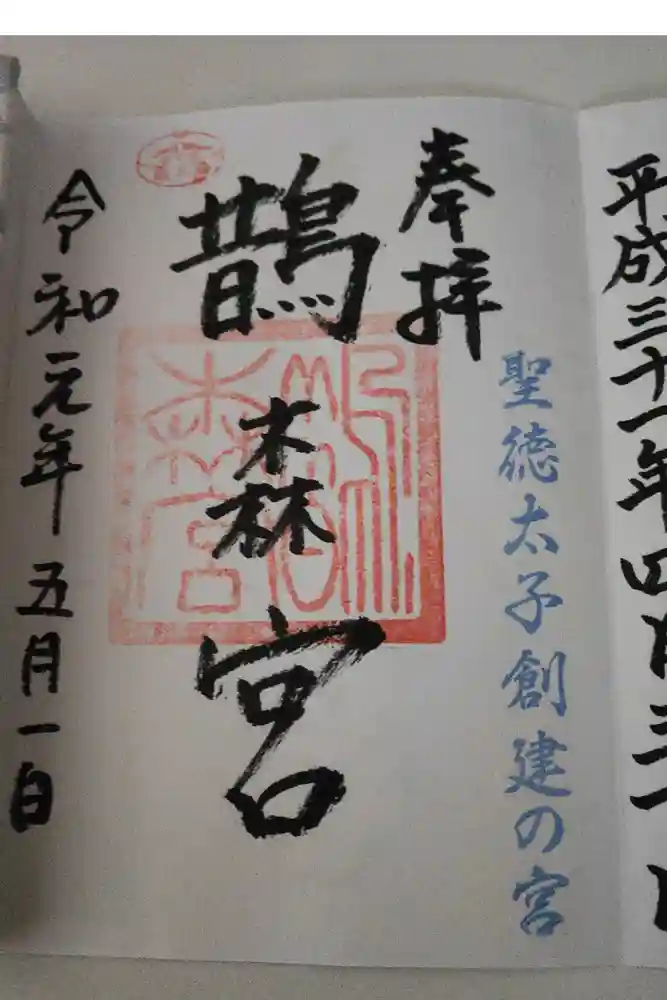 平成三十一年四月三
奉拝
聖徳太子創建の宮
鵲森宮
令和元年五月一日